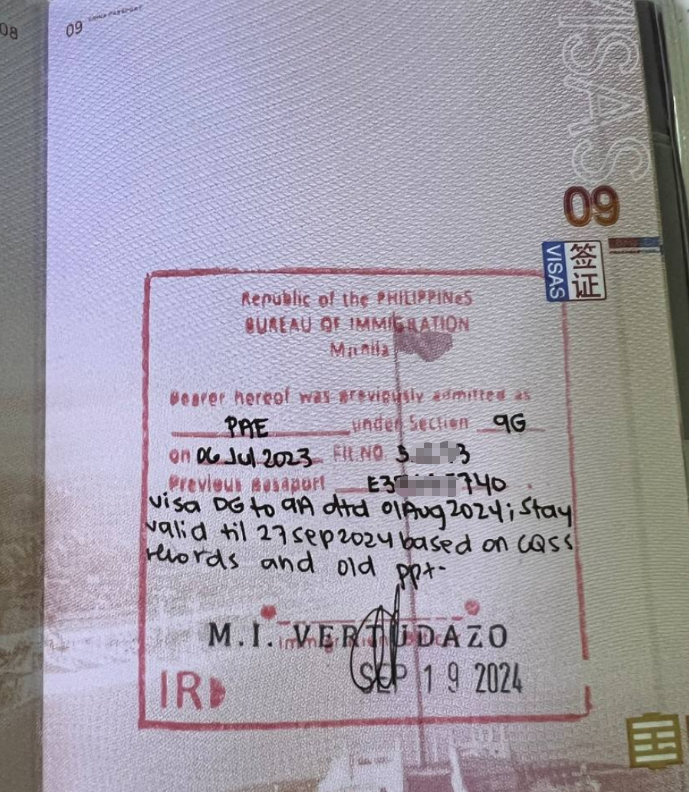 08
09
VISAS
09
签证
VISAS
Republic of the PHILIPPINeS
BUREAU OF IMMIGRATION
Manila
Bearer hereof was previously admitted as
PAE under Section 9G
on 06 Jul 2023 FIL NO 3 3
Previous Passport E3 740
visa DG to 9A dtd 01Aug2024; stay
valid til 27Sep2024 based on CQSS
records and old ppt.
M.I. VERTUDAZO
SEP 19 2024
IRD